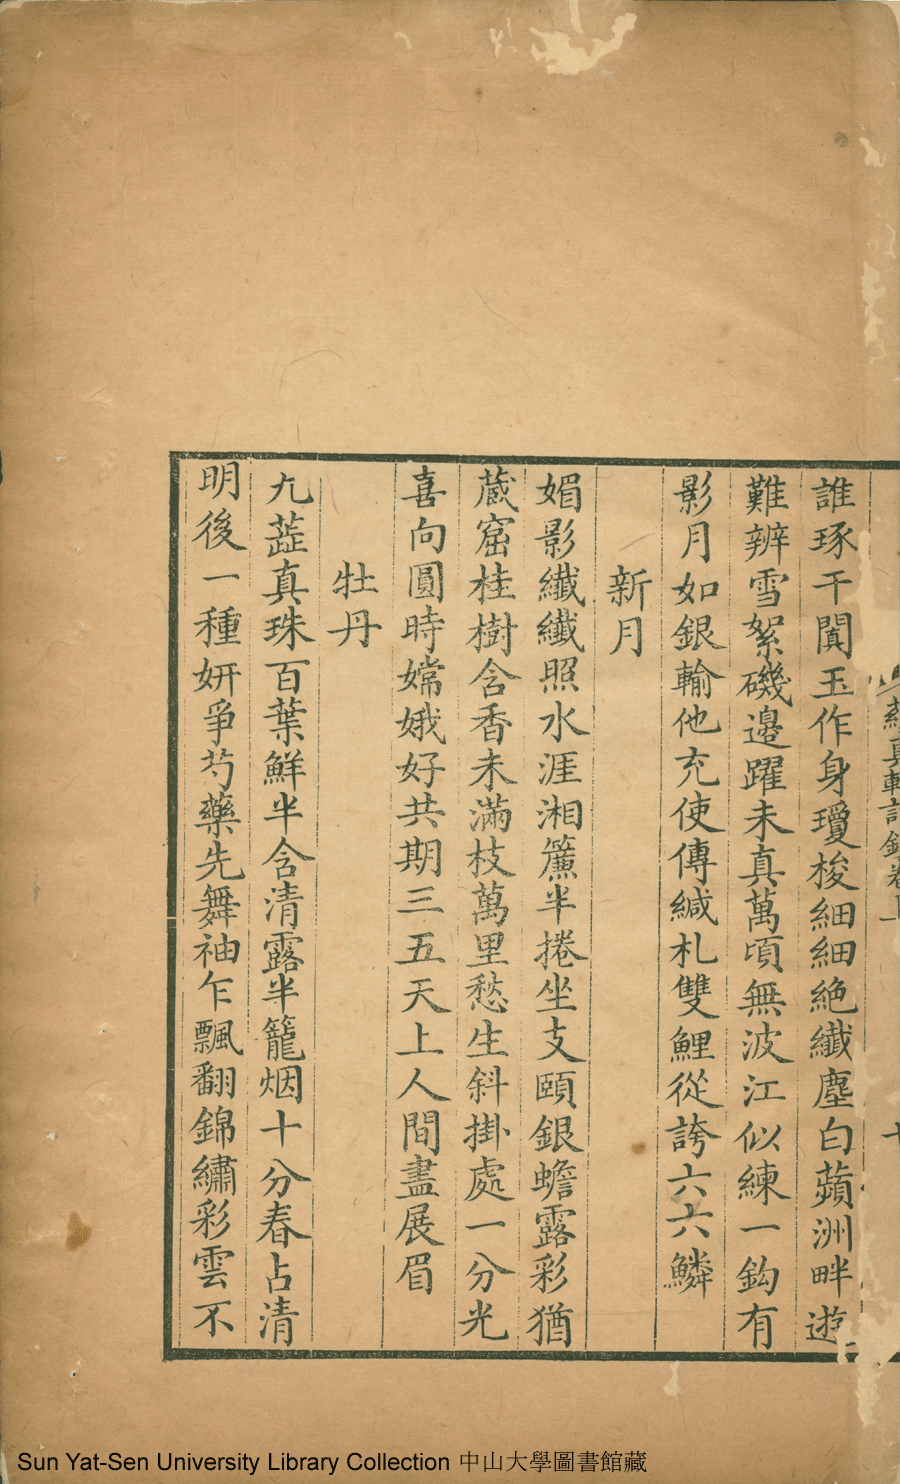 蘊真軒詩鈔卷上
誰琢于闐玉作身瓊梭細細絶纎塵白蘋洲畔遊
難辨雪絮磯邉躍未真萬頃無波江似練一鈎有
影月如銀輸他充使傳緘札雙鯉從誇六六鱗
新月
媚影纎纎照水涯湘簾半捲坐支頤銀蟾露彩猶
蔵窟桂樹含香未滿枝萬里愁生斜掛處一分光
喜向圓時嫦娥好共期三五天上人間盡展眉
牡丹
九蕋真珠百葉鮮半含清露半籠烟十分春占清
明後一種妍爭芍藥先舞袖乍飄翻錦繡彩雲不
Sun Yat-Sen University Library Collection 中山大學圖書館藏